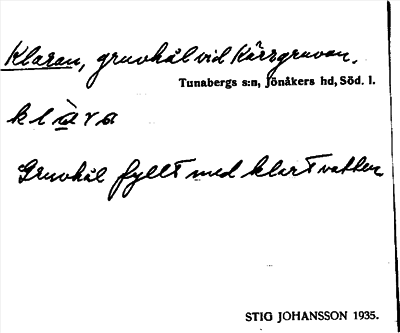 Klaran, gruvhål vid Kärrgruvan.
Tunabergs s:n, Jönåkers hd, Söd. l.
klàra
Gruvhål fyllt med klart vatten.
STIG JOHANSSON 1935.